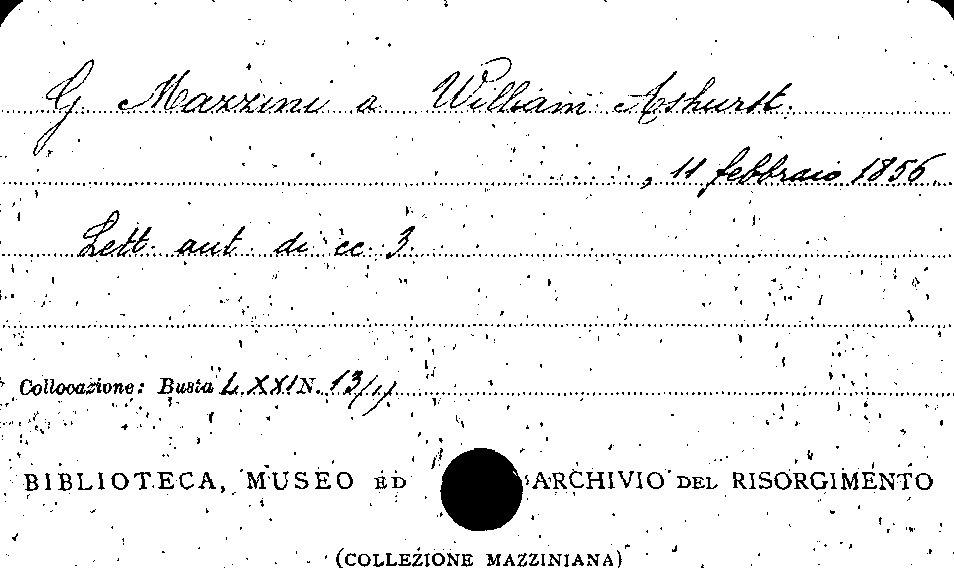 G. Mazzini a William Ashurst.
, 11 febbraio 1856.
Lett. aut. di cc. 3
Collocazione: Busta LXXI N. 13/
BIBLIOTECA, MUSEO ED ARCHIVIO DEL RISORGIMENTO
(COLLEZIONE MAZZINIANA)